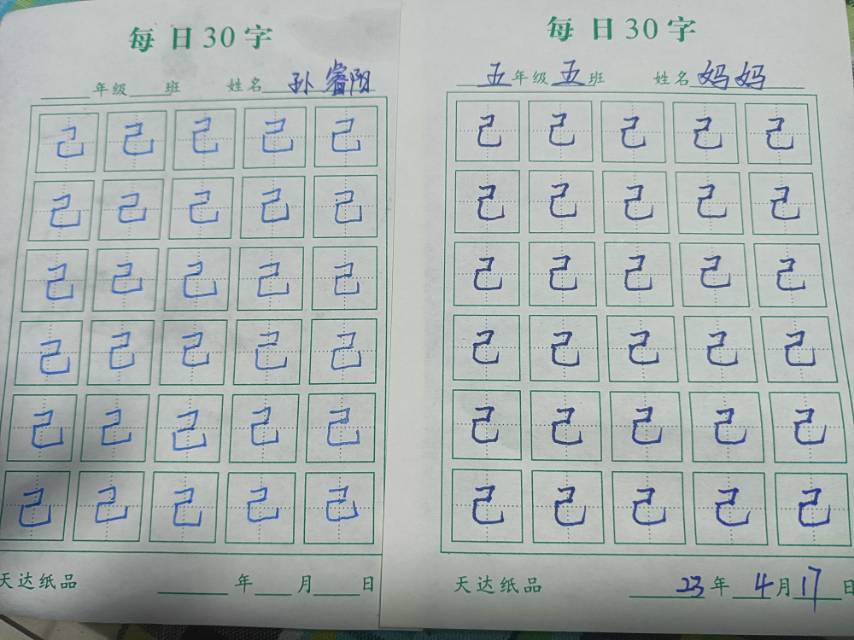 每日30字
年级 班 姓名 孙睿阳
己 己 己 己 己
己 己 己 己 己
己 己 己 己 己
己 己 己 己 己
己 己 己 己 己
己 己 己 己 己
天达纸品 年 月 日
每日30字
五年级五班 姓名 妈妈
己 己 己 己 己
己 己 己 己 己
己 己 己 己 己
己 己 己 己 己
己 己 己 己 己
己 己 己 己 己
天达纸品 23年4月17日